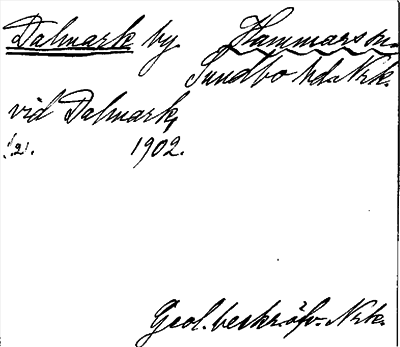 Dalmark by Hammars sn.
Sundbo hd. Nrk.
vid Dalmark,
1902.
Geol. beskr. öfv. Nrk.